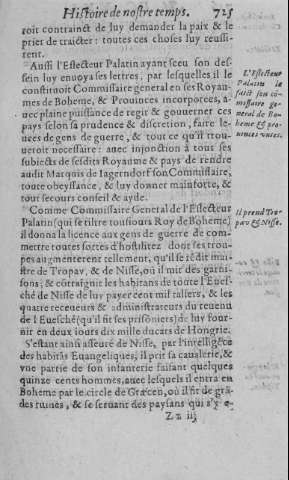 Histoire de nostre temps. 725
roit contrainct de luy demander la paix & le
prier de traicter: toutes ces choses luy reussi-
rent.
Aussi l'Eslecteur Palatin ayant sceu son des-
sein luy enuoya ses lettres, par lesquelles il le
constituoit Commissaire general en ses Royau-
mes de Boheme, & Prouinces incorporees, a-
uec plaine puissance de regir & gouuerner ces
pays selon sa prudence & discretion, faire le-
uees de gens de guerre, & tout ce qu'il trou-
ueroit necessaire: auec injonction à tous ses
subiects de sesdits Royaume & pays de rendre
audit Marquis de Iagerndorf son Commissaire,
toute obeyssance, & luy donner mainforte, &
tout secours conseil & ayde.
L'Eslecteur
Palatin le
faict son cō-
missaire ge-
neral de Bo-
heme & pro-
uinces vnies.
Comme Commissaire General de l'Eslecteur
Palatin (qui se tiltre tousiours Roy de Boheme)
il donna licence aux gens de guerre de com-
mettre toutes sortes d'hostilitez dont ses trou-
pes augmenterent tellement, qu'il se rēdit mai-
stre de Tropav, & de Nisse, où il mit des garni-
sons; & cōtraignit les habitans de toute l'Eues-
ché de Nisse de luy payer cent mil talers, & les
quatre receueurs & administrateurs du reuenu
de l'Euesché (qu'il fit ses prisoniers) de luy four-
nir en deux iours dix mille ducats de Hongrie.
Il prend Tro-
pav & Nisse.
S'estant ainsi asseuré de Nisse, par l'intelligēce
des habitās Euangeliques, il prit sa caualerie, &
vne partie de son infanterie faisant quelques
quinze cents hommes, auec lesquels il entra en
Boheme par le circle de Græcen, où il fit de grā-
des ruines, & se seruant des paysans qui s'y
Zz iij